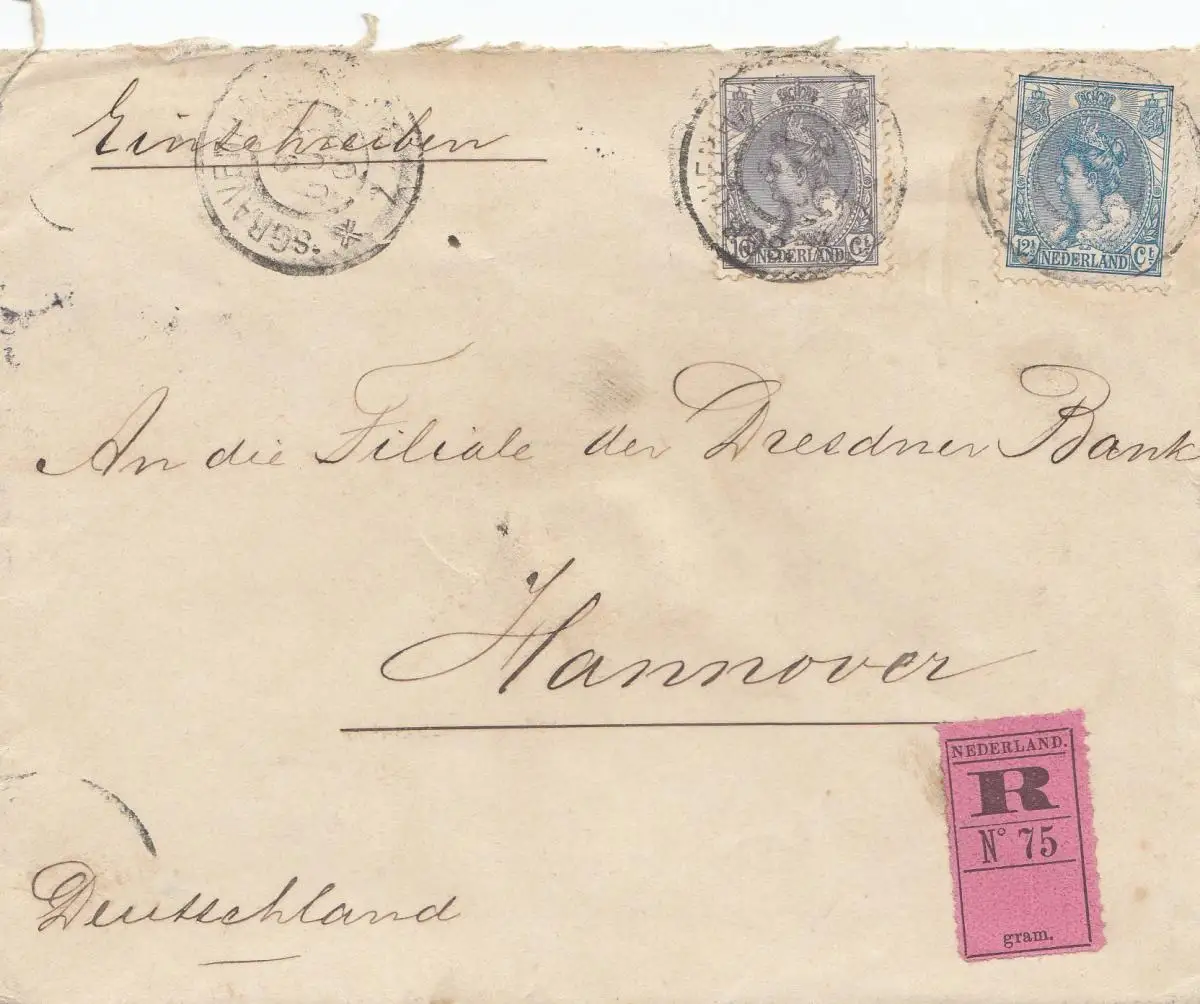 Einschreiben
'SGRAVEN
7
10 Ct
NEDERLAND
12½ Ct
NEDERLAND
An die Filiale der Dresdner Bank
Hannover
NEDERLAND.
R
N° 75
gram.
Deutschland